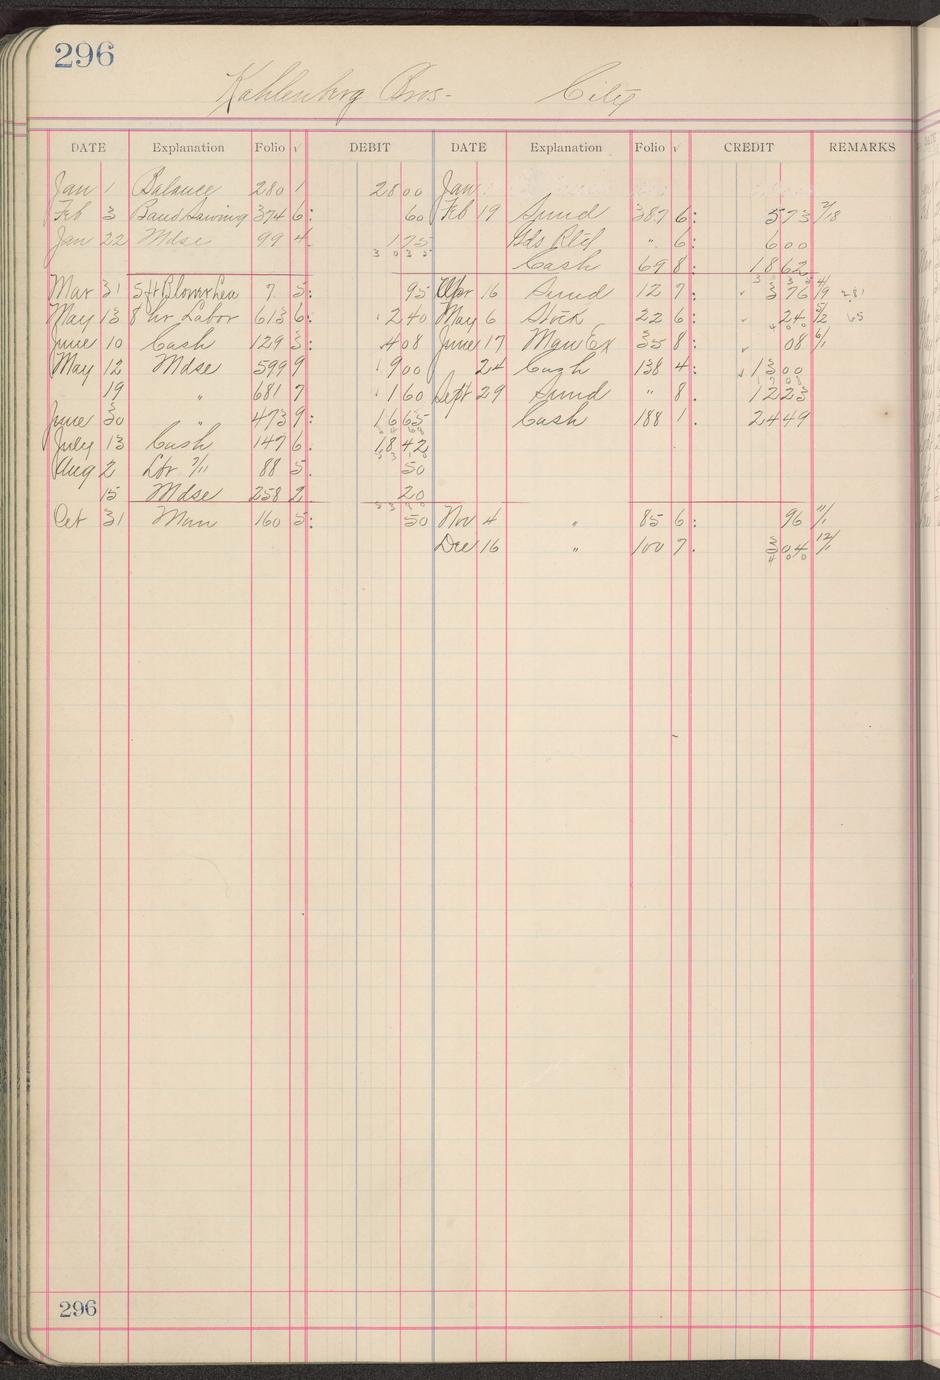 296
Kahlenberg Bros- City
DATE Explanation Folio √ DEBIT DATE Explanation Folio √ CREDIT REMARKS
Jan 1 Balance 280 1 28 00 Jan
Feb 3 Band Sawing 374 6: 60 Feb 19 Sund 387 6: 5 73 2/18
Jan 22 Mdse 99 4. 1 75 Gds Rtd " 6: 6 00
30 35 Cash 69 8: 18 62
Mar 31 5 ft Blower 7 5: 95 Apr 16 Sund 12 7: 3 76 4/19 281
May 13 8 hr Labor 613 6: 2 40 May 6 Stock 22 6: 24 5/12 65
June 10 Cash 129 3: 4 08 June 17 Man Ex 35 8: 08 6/1
May 12 Mdse 599 9 9 00 24 Cash 138 4: 13 00
19 " 681 7 1 60 Sept 29 Sund " 8. 12 23
June 30 " 473 9: 16 65 Cash 188 1. 24 49
July 13 Cash 147 6. 18 42
Aug 2 88 5. 50
15 Mdse 258 2 20
Oct 31 Man 160 5: 50 Nov 4 " 85 6: 96 11/1
Dec 16 " 100 7. 3 04 12/1
4 00
296